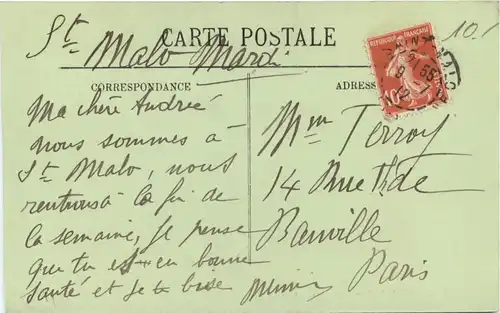 CARTE POSTALE
St Malo Mardi
CORRESPONDANCE
Ma chère Andrée
nous sommes à
St Malo, nous
rentrons à la fin de
la semaine, je pense
que tu es en bonne
santé et je te bise
Mimi
ADRES
Mme Terroy
14 Rue Th de
Banville
Paris
REPUBLIQUE FRANÇAISE
10